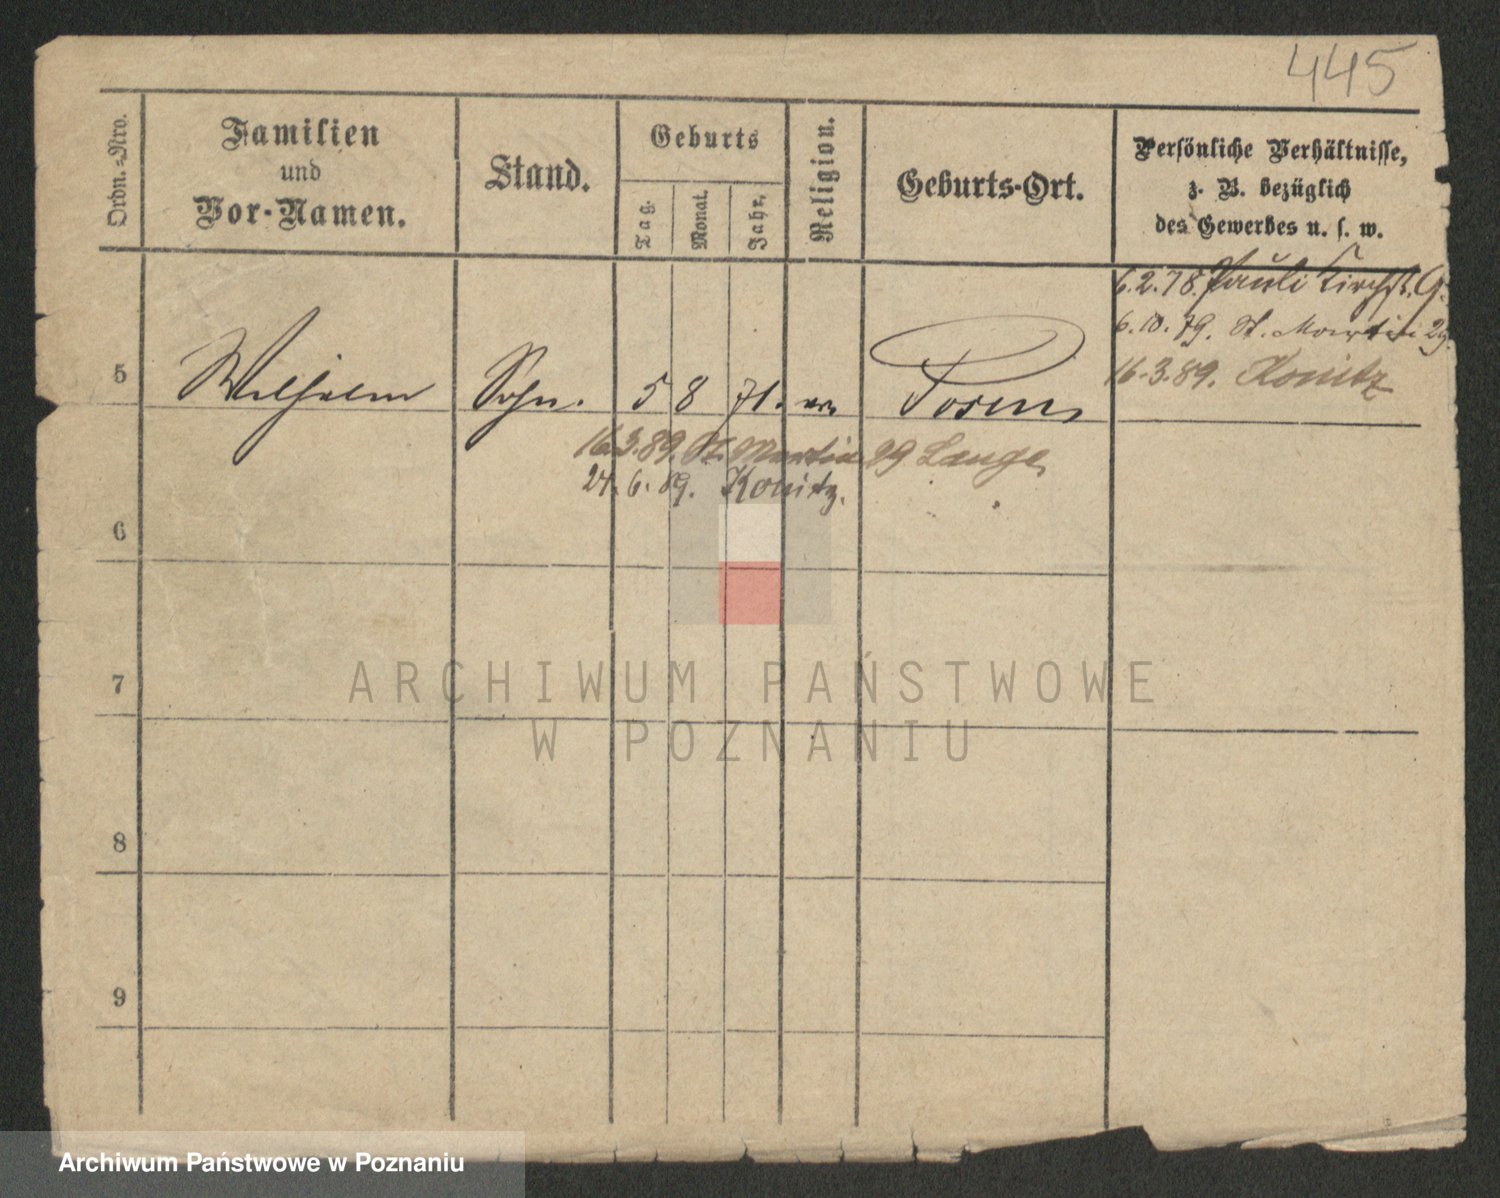 445
Ordn.-Nro.
Familien
und
Vor-Namen.
Stand.
Geburts
Tag.
Monat.
Jahr.
Religion.
Geburts-Ort.
Persönliche Verhältnisse,
z. B. bezüglich
des Gewerbes u. s. w.
6.2.78. Pauli Kirchst. 9.
6.10.79. St. Martin 29.
16.3.89. Konitz
5 Wilhelm Sohn. 5 8 71. Posen
16.3.89. St. Martin 29 Lange
24.6.89. Konitz.
6
7
8
9
ARCHIWUM PAŃSTWOWE
W POZNANIU
Archiwum Państwowe w Poznaniu